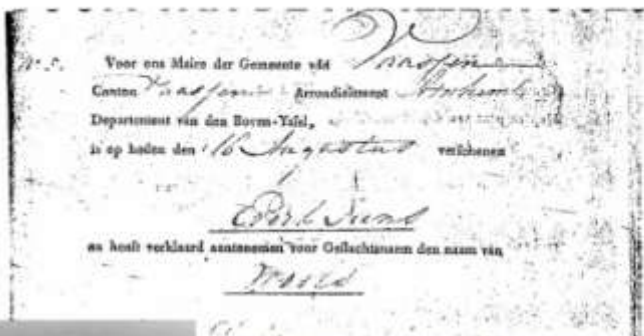 N° 5. Voor ons Maire der Gemeente van Vaassen
Canton Vaassen Arrondissement Arnhem
Departement van den Boven-Yssel,
is op heden den 16 Augustus verschenen
en heeft verklaard aantenemen voor Geslachtsnaam den naam van